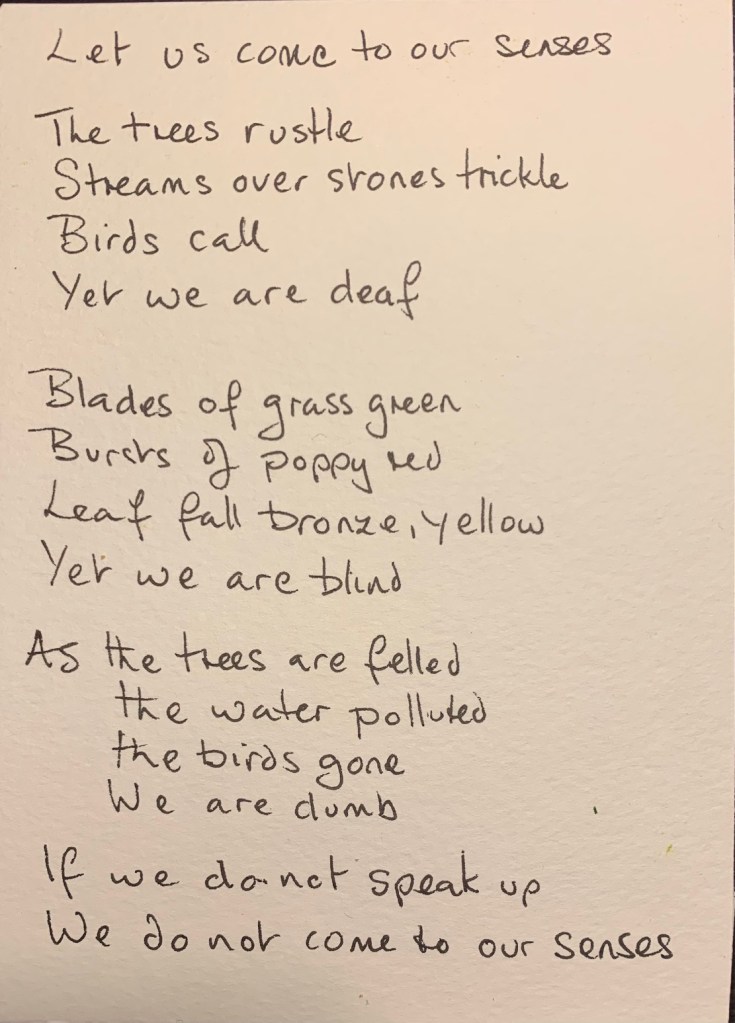 Let us come to our senses
The trees rustle
Streams over stones trickle
Birds call
Yet we are deaf
Blades of grass green
Bursts of poppy red
Leaf fall bronze, yellow
Yet we are blind
As the trees are felled
the water polluted
the birds gone
We are dumb
If we do not speak up
We do not come to our senses